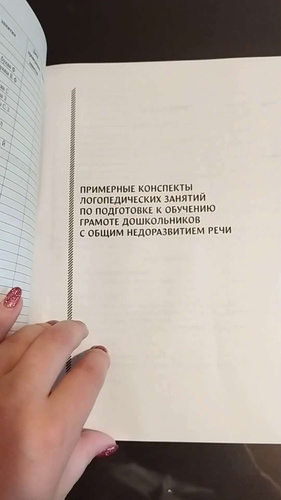 ПРИМЕРНЫЕ КОНСПЕКТЫ
ЛОГОПЕДИЧЕСКИХ ЗАНЯТИЙ
ПО ПОДГОТОВКЕ К ОБУЧЕНИЮ
ГРАМОТЕ ДОШКОЛЬНИКОВ
С ОБЩИМ НЕДОРАЗВИТИЕМ РЕЧИ